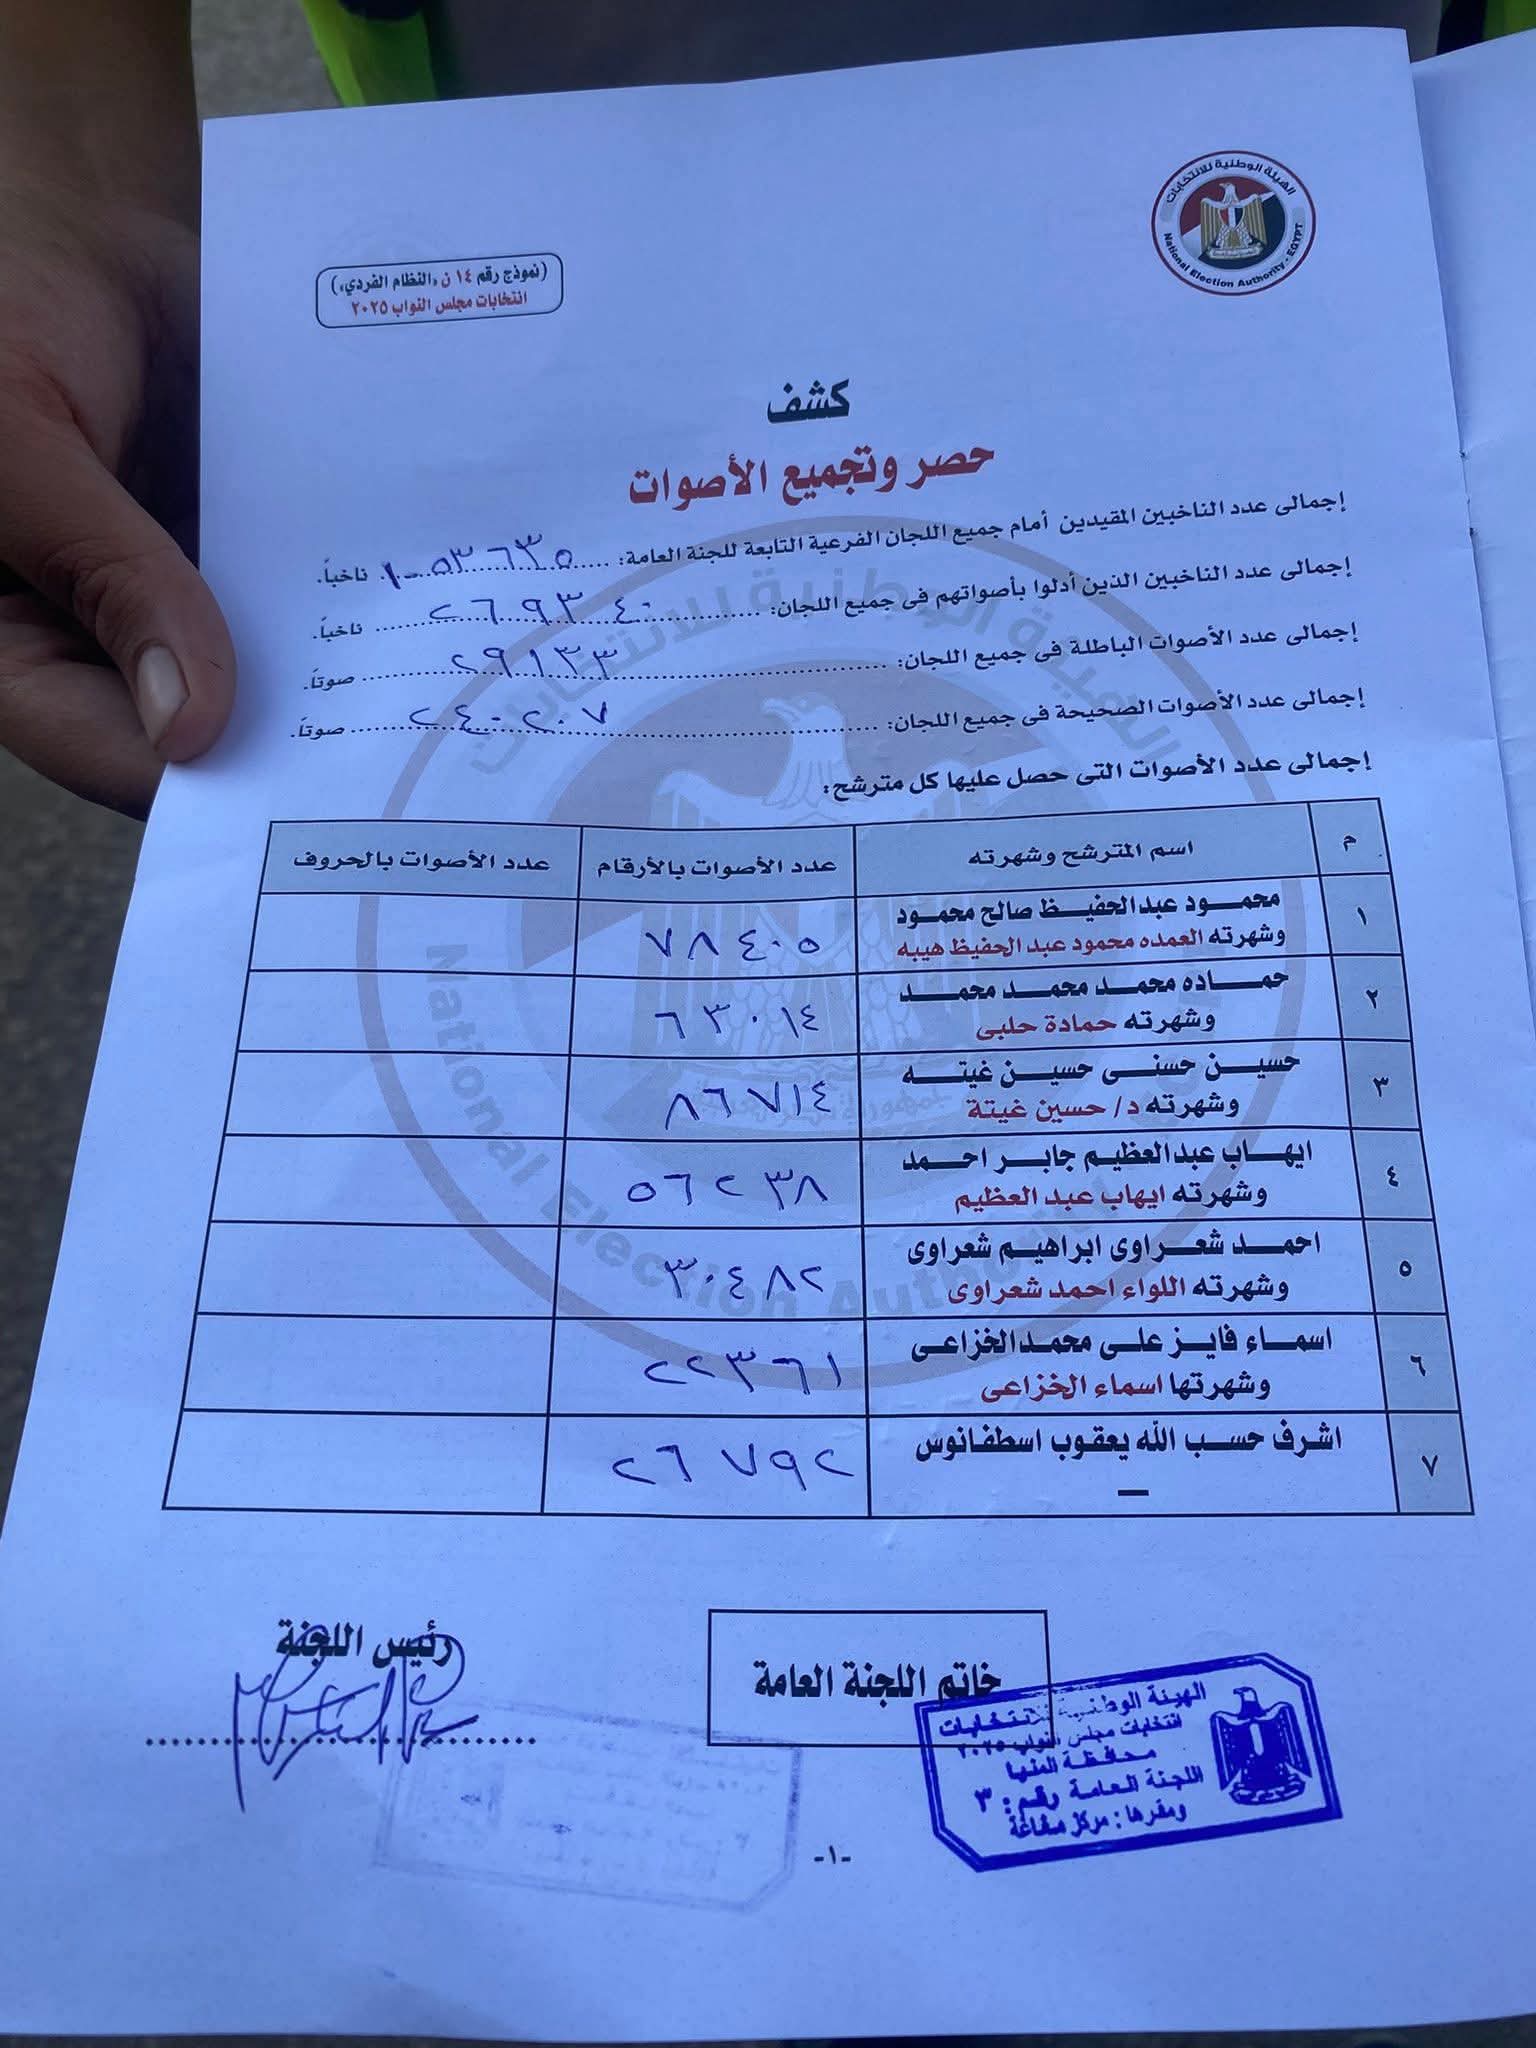 الهيئة الوطنية للانتخابات
National Election Authority - EGYPT
(نموذج رقم ١٤ ن «النظام الفردي»)
انتخابات مجلس النواب ٢٠٢٥
كشف
حصر وتجميع الأصوات
إجمالى عدد الناخبين المقيدين أمام جميع اللجان الفرعية التابعة للجنة العامة: ١٠٥٣٦٣٥ ناخباً.
إجمالى عدد الناخبين الذين أدلوا بأصواتهم فى جميع اللجان: ٢٦٩٣٤٠ ناخباً.
إجمالى عدد الأصوات الباطلة فى جميع اللجان: ٢٩١٣٣ صوتاً.
إجمالى عدد الأصوات الصحيحة فى جميع اللجان: ٢٤٠٢٠٧ صوتاً.
إجمالى عدد الأصوات التى حصل عليها كل مترشح:
م اسم المترشح وشهرته عدد الأصوات بالأرقام عدد الأصوات بالحروف
١ محمود عبدالحفيظ صالح محمود ٧٨٤٠٥
وشهرته العمده محمود عبد الحفيظ هيبه
٢ حماده محمد محمد محمد ٦٣٠١٤
وشهرته حمادة حلبى
٣ حسين حسنى حسين غيته ٨٦٧١٤
وشهرته د/ حسين غيتة
٤ ايهاب عبدالعظيم جابر احمد ٥٦٢٣٨
وشهرته ايهاب عبد العظيم
٥ احمد شعراوى ابراهيم شعراوى ٣٠٤٨٢
وشهرته اللواء احمد شعراوى
٦ اسماء فايز على محمد الخزاعى ٢٢٣٦١
وشهرتها اسماء الخزاعى
٧ اشرف حسب الله يعقوب اسطفانوس ٢٦٧٩٢
—
خاتم اللجنة العامة
رئيس اللجنة
الهيئة الوطنية للانتخابات
انتخابات مجلس النواب ٢٠٢٥
محافظة المنيا
اللجنة العامة رقم: ٣
ومقرها: مركز مغاغة
-١-